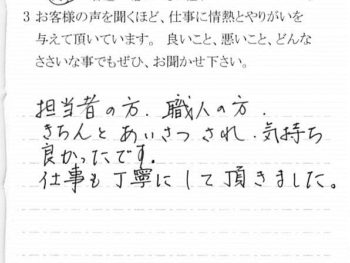 3 お客様の声を聞くほど、仕事に情熱とやりがいを
与えて頂いています。 良いこと、悪いこと、どんな
ささいな事でもぜひ、お聞かせ下さい。
担当者の方、職人の方、
きちんとあいさつされ、気持ち
良かったです。
仕事も丁寧にして頂きました。